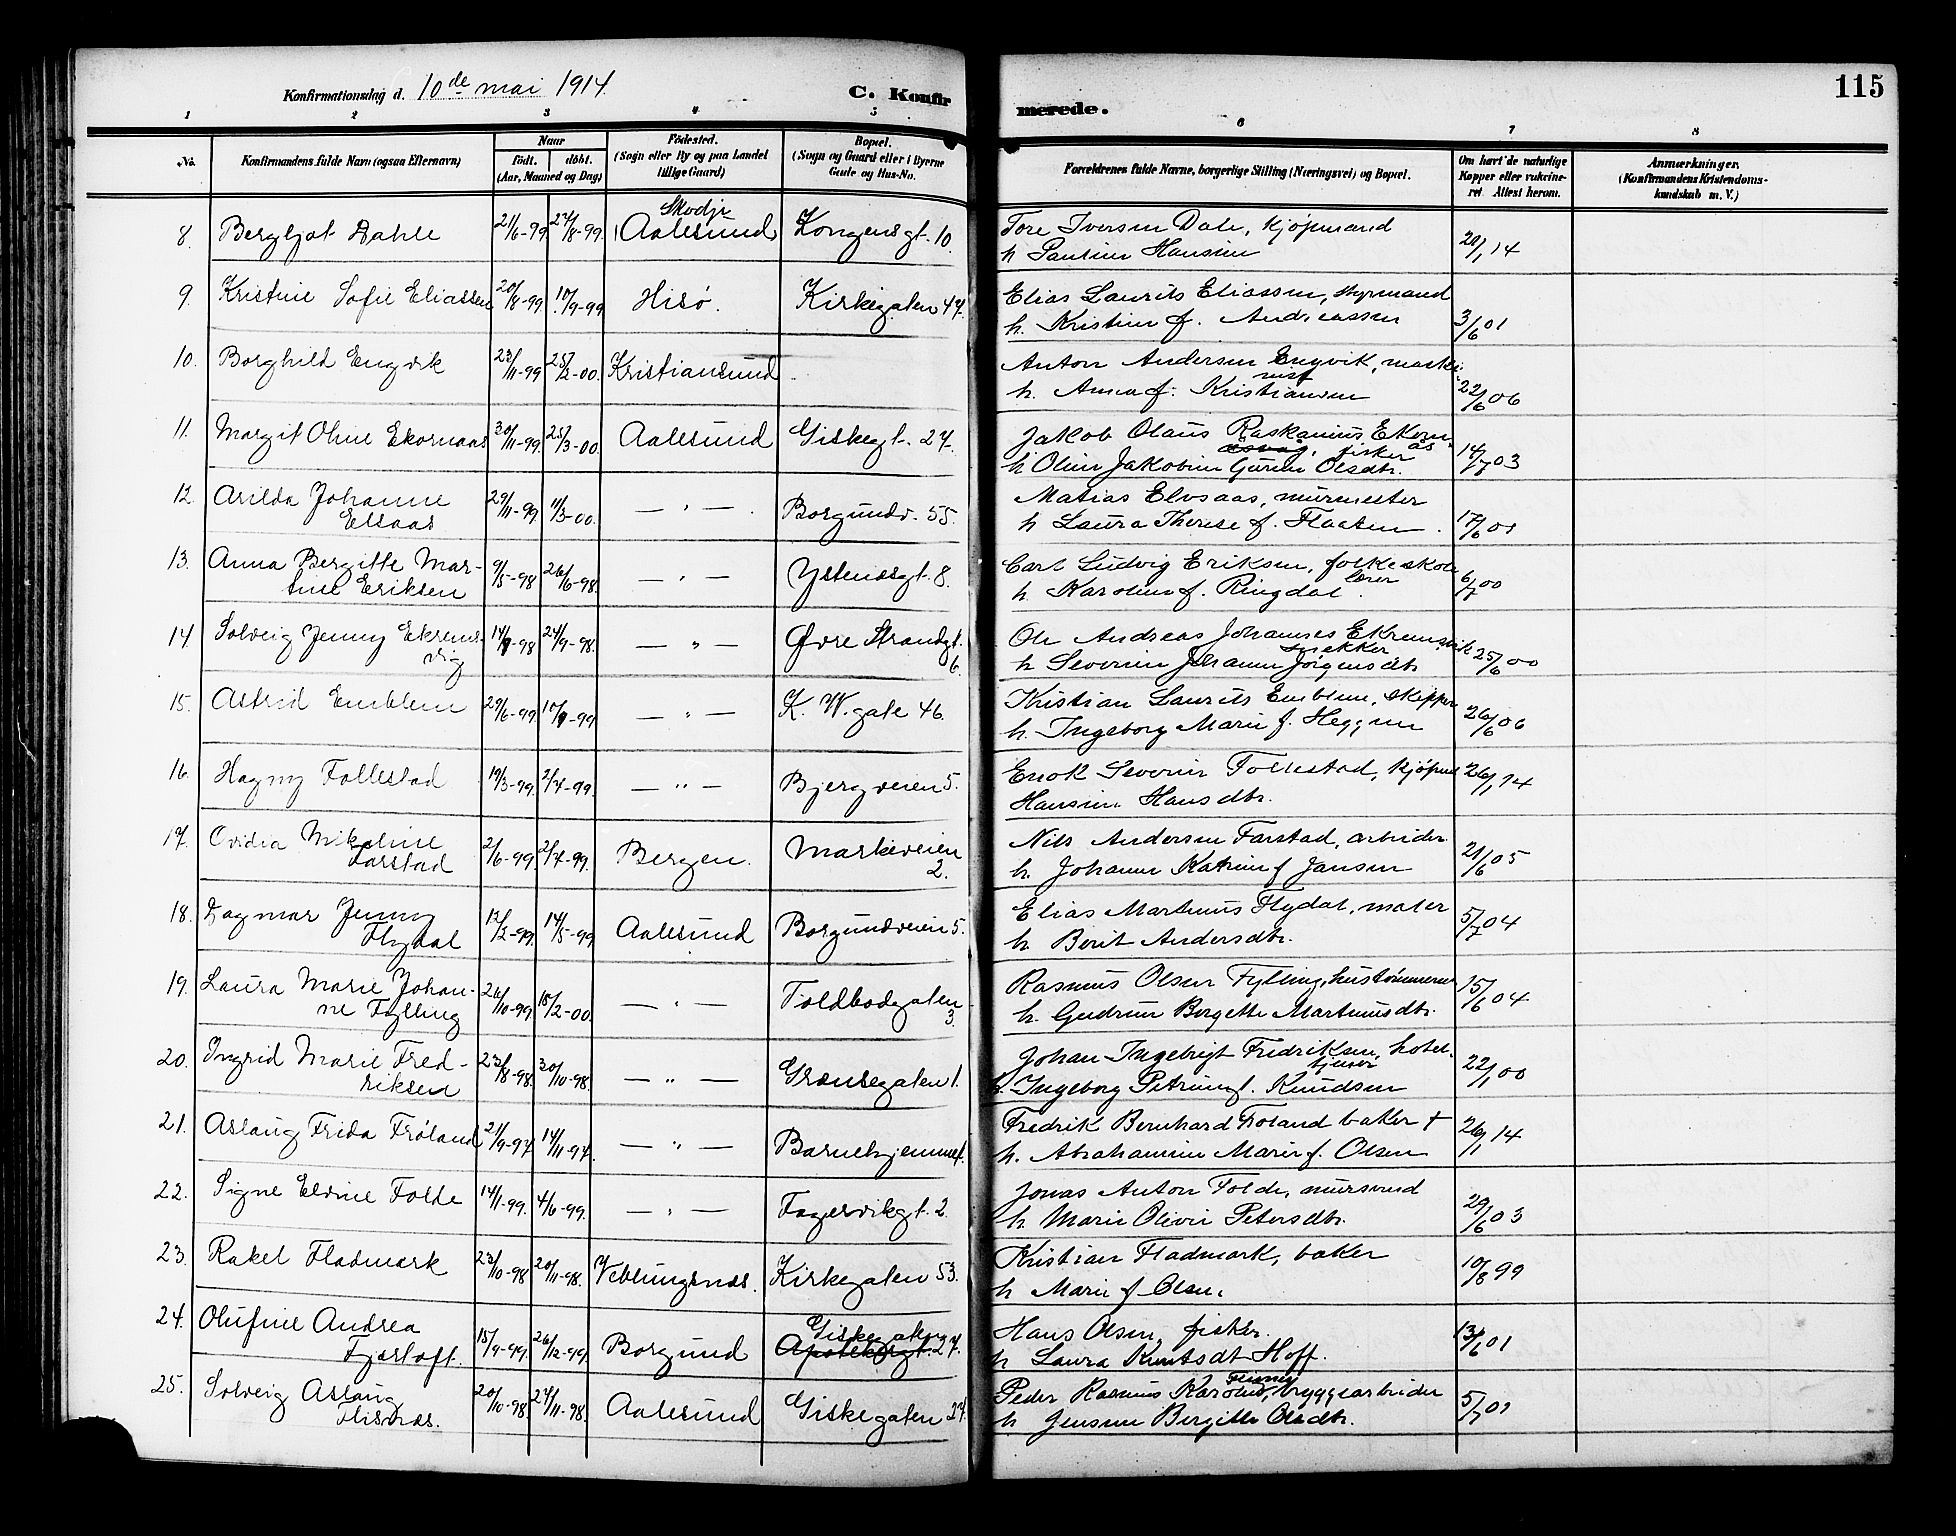 Konfirmationsdag d. 10de mai 1914.
C. Konfirmerede.
115
1 2 3 4 5 6 7 8
No. Konfirmandens fulde Navn (ogsaa Efternavn) Naar født. døbt. (Aar, Maaned og Dag) Fødested. (Sogn eller By og paa Landet tillige Gaard) Bopæl. (Sogn og Gaard eller i Byerne Gade og Hus-No. Forældrenes fulde Navne, borgerlige Stilling (Næringsvei) og Bopæl. Om havt de naturlige Kopper eller vakcineret Attest herom. Anmærkninger. (Konfirmandens Kristendomskundskab m. V.)
8. Bergljot Dahle 21/6-99 27/8-99. Skodje (Aalesund) Kongensgt. 10. Tore Iversen Dale, kjøpmand
h Pauline Hansine 20/1 14
9. Kristine Sofie Eliassen 20/8-99 10/9-99 Hisø. Kirkegaten 47. Elias Laurits Eliassen, styrmand
h. Kristine f. Andreassen 3/6 01
10. Borghild Engvik 23/11-99 25/2-00. Kristiansund Anton Andersen Engvik, maski-
nist
h. Anna f. Kristiansen 22/6 06
11. Margit Oline Ekornaas 30/11-99. 25/3-00. Aalesund Giskegt. 27. Jakob Olaus Raskanius Ekorn-
aas
fisker
h Oline Jakobine Gurine Olsdtr. 14/7 03
12. Arilda Johanne
Elsaas 29/11-99. 11/3-00. — " — Borgundv. 55. Matias Elvsaas, murmester
h Laura Therese f. Flaaten. 17/6 01
13. Anna Bergitte Mar-
tine Eriksen 9/5-98 26/6-98. — " — Ystenesgt. 8. Carl Ludvig Eriksen, folkeskole
lærer
h. Karoline f. Ringdal. 6/7 00
14 Solveig Jenny Ekrems-
vig 14/7-98 24/9-98. — " — Øvre Strandgt.
6. Ole Andreas Johannes Ekremsvik
snekker
h Severine Johanne Jørgensdtr 25/6 00
15. Astrid Emblem 29/6-99. 17/9-99 — " — K. W. gate 46. Kristian Laurits Emblem, skipper
h. Ingeborg Marie f. Heggen 26/6 06
16. Hagny Follestad 19/3-99. 2/4-99. — " — Bjergveien 5. Enok Severin Follestad, kjøpm.
Hansine Hansdtr. 26/1 14
17. Ovidia Mikaline
Farstad 2/6-99. 2/7-99. Bergen. Markeveien
2. Nils Andersen Farstad, arbeider
h. Johanne Katrine f Jansen 21/6 05
18. Dagmar Jenny
Flydal 12/2-99. 14/5-99 Aalesund Borgundveien 5. Elias Martinus Flydal, maler
h Berit Andersdtr. 5/7 04
19. Laura Marie Johan-
ne Fylling 26/10-99. 18/2-00. — " — Toldbodgaten
3. Rasmus Olsen Fylling, hustømmerm.
h. Gudrun Bergette Martinusdtr. 15/6 04
20. Ingrid Marie Fred-
riksen 23/8-98. 30/10-98. — " — Grænsegaten 1. Johan Ingebrigt Fredriksen, hotel-
tjener
h. Ingeborg Petrine f. Knudsen 22/1 00
21. Aslaug Frida Frøland 21/9-97 14/11-97. — " — Barnehjemmet. Fredrik Bernhard Froland baker †
h. Abrahamine Marie f. Olsen 26/1 14
22. Signe Eldine Folde 14/1-99. 4/6-99. — " — Fagervikgt. 2. Jonas Anton Folde, mursvend
h Marie Olivie Petersdtr. 29/6 03
23. Rakel Fladmark 23/10-98 20/11-98. Veblungsnæs. Kirkegaten 53. Kristian Fladmark, baker
h Marie f. Olsen. 10/8 99
24. Olufine Andrea
Fjørtoft. 15/9-99. 26/12-99 Borgund Giskegaten
Apotekergt. 27. Hans Olsen, fisker.
h Laura Knutsdt Hoff. 13/6 01
25. Solveig Aslaug
Flisnæs. 20/10-98. 27/11-98. Aalesund Giskegaten 27. Flisnes
Peder Rasmus Karolius, bryggearbeider
h Jensine Bergitte Olsdtr. 5/7 01